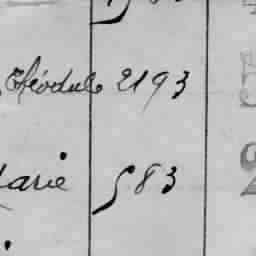 Théodule 2193
Marie 583